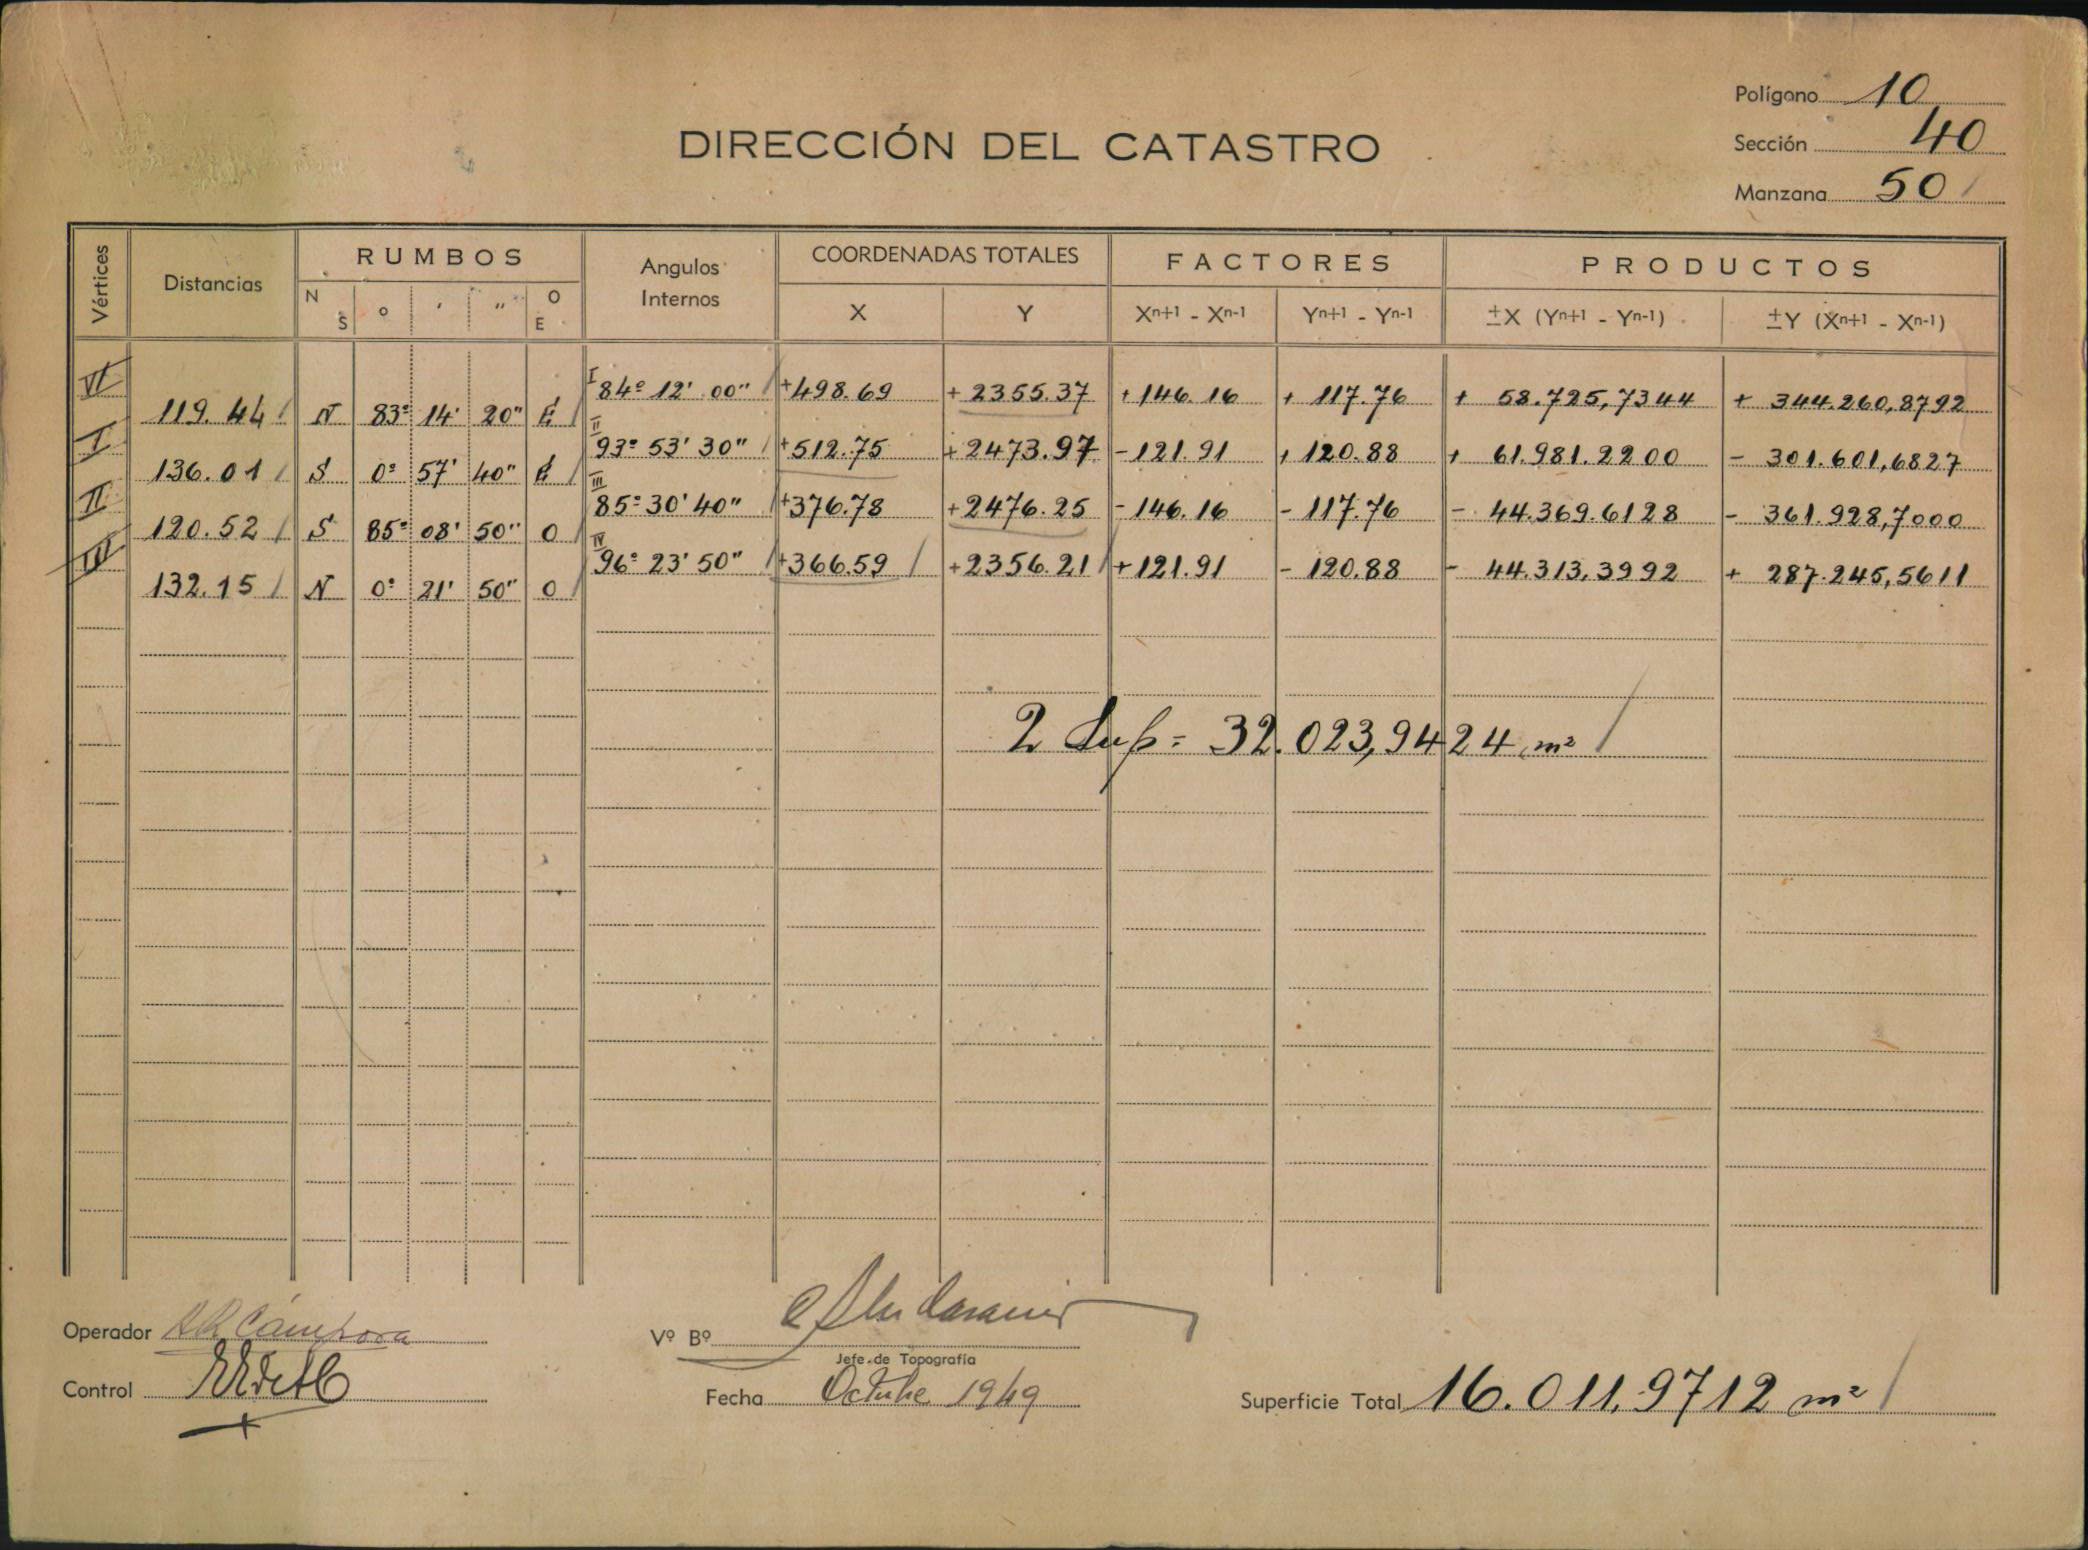 Polígono 10
DIRECCIÓN DEL CATASTRO
Sección 40
Manzana 50
Vértices Distancias RUMBOS Angulos Internos COORDENADAS TOTALES FACTORES PRODUCTOS
N S ° ' " O E X Y Xn+1 - Xn-1 Yn+1 - Yn-1 ±X (Yn+1 - Yn-1) ±Y (Xn+1 - Xn-1)
I 84º 12' 00" +498.69 +2355.37 +146.16 +117.76 + 58.725,7344 + 344.260,8792
119.44 N 83º 14' 20" E
I II 93º 53' 30" +512.75 +2473.97 -121.91 +120.88 + 61.981.2200 - 301.601,6827
136.01 S 0º 57' 40" E
II III 85º 30' 40" +376.78 +2476.25 -146.16 -117.76 - 44.369.6128 - 361.928,7000
120.52 S 85º 08' 50" O
IV 96º 23' 50" +366.59 +2356.21 +121.91 -120.88 - 44.313,3992 + 287.245,5611
132.15 N 0º 21' 50" O
2 Sup = 32.023,9424 m²
Operador
Vº Bº
Jefe de Topografía
Control
Fecha Octubre 1949
Superficie Total 16.011,9712 m²